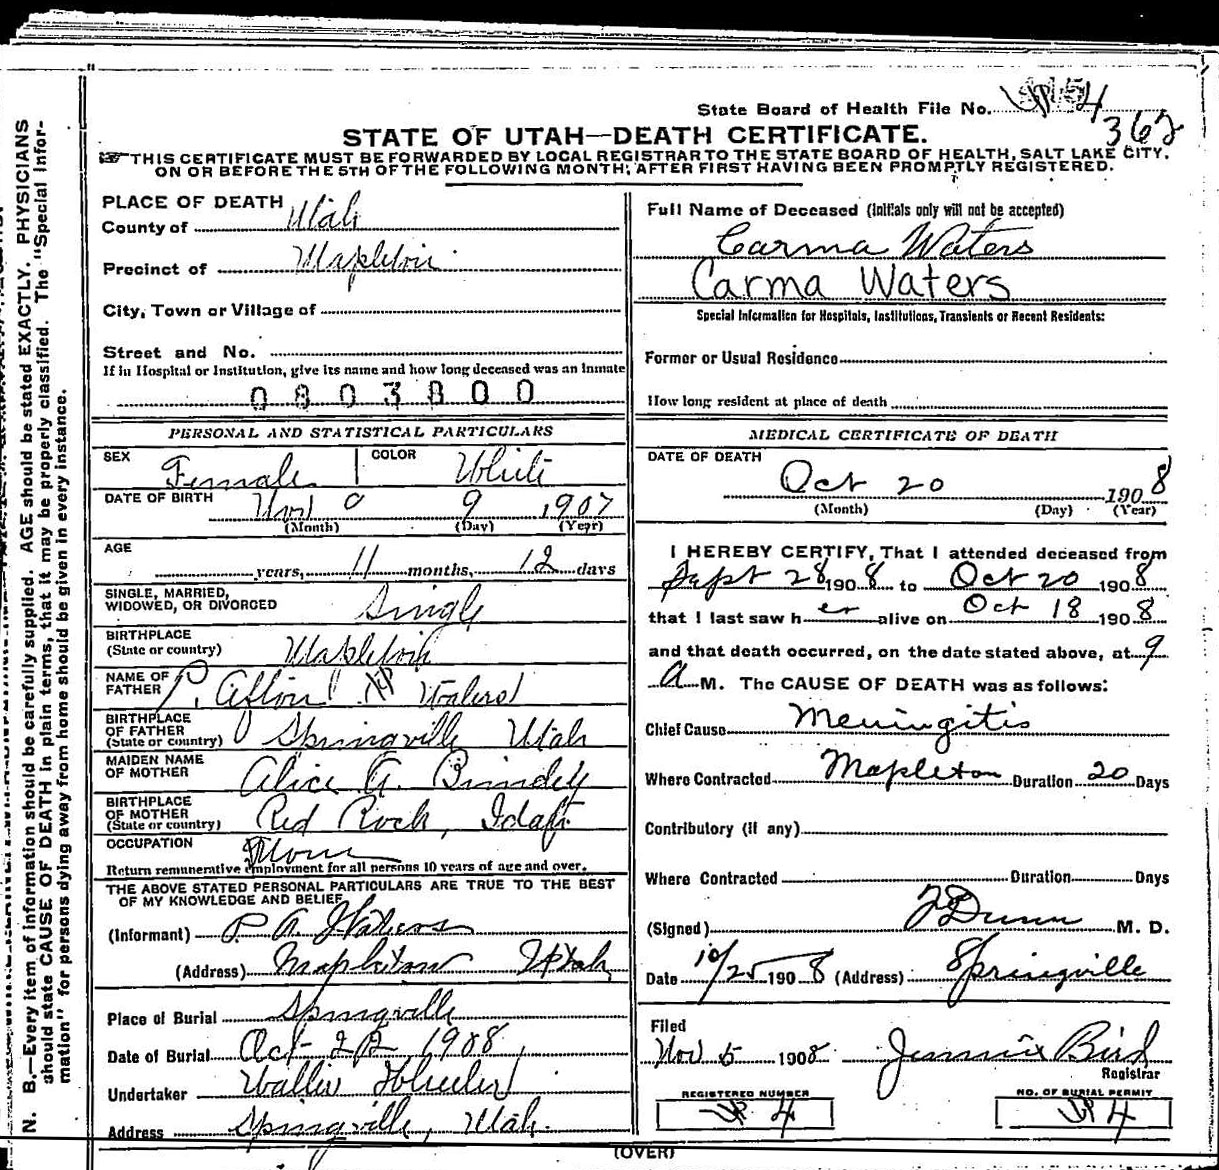 State Board of Health File No. 4
362
STATE OF UTAH—DEATH CERTIFICATE.
☞ THIS CERTIFICATE MUST BE FORWARDED BY LOCAL REGISTRAR TO THE STATE BOARD OF HEALTH, SALT LAKE CITY,
ON OR BEFORE THE 5TH OF THE FOLLOWING MONTH; AFTER FIRST HAVING BEEN PROMPTLY REGISTERED.
N. B.—Every item of information should be carefully supplied. AGE should be stated EXACTLY. PHYSICIANS
should state CAUSE OF DEATH in plain terms, that it may be properly classified. The "Special Infor-
mation" for persons dying away from home should be given in every instance.
PLACE OF DEATH
County of Utah
Precinct of Mapleton
City, Town or Village of
Street and No.
If in Hospital or Institution, give its name and how long deceased was an Inmate
0803800
PERSONAL AND STATISTICAL PARTICULARS
SEX Female COLOR White
DATE OF BIRTH Nov 9 1907
(Month) (Day) (Year)
AGE years, 11 months, 12 days
SINGLE, MARRIED,
WIDOWED, OR DIVORCED Single
BIRTHPLACE
(State or country) Mapleton
NAME OF
FATHER P. Waters
BIRTHPLACE
OF FATHER
(State or country) Springville Utah
MAIDEN NAME
OF MOTHER Alice A.
BIRTHPLACE
OF MOTHER
(State or country) Red Rock,
OCCUPATION
Return remunerative employment for all persons 10 years of age and over.
THE ABOVE STATED PERSONAL PARTICULARS ARE TRUE TO THE BEST
OF MY KNOWLEDGE AND BELIEF
(Informant) P. A. Waters
(Address) Mapleton Utah
Place of Burial Springville
Date of Burial Oct 22, 1908
Undertaker Wheeler
Address Springville, Utah.
Full Name of Deceased (Initials only will not be accepted)
Carma Waters
Carma Waters
Special Information for Hospitals, Institutions, Transients or Recent Residents:
Former or Usual Residence
How long resident at place of death
MEDICAL CERTIFICATE OF DEATH
DATE OF DEATH
Oct 20 1908
(Month) (Day) (Year)
I HEREBY CERTIFY, That I attended deceased from
Sept 28 1908 to Oct 20 1908
that I last saw her alive on Oct 18 1908
and that death occurred, on the date stated above, at 9
A M. The CAUSE OF DEATH was as follows:
Chief Cause Meningitis
Where Contracted Mapleton Duration 20 Days
Contributory (if any)
Where Contracted Duration Days
(Signed) F Dunn M. D.
Date 10/25 1908 (Address) Springville
Filed
Nov 5 1908 Jennie Bird
Registrar
REGISTERED NUMBER
4
NO. OF BURIAL PERMIT
4
(OVER)